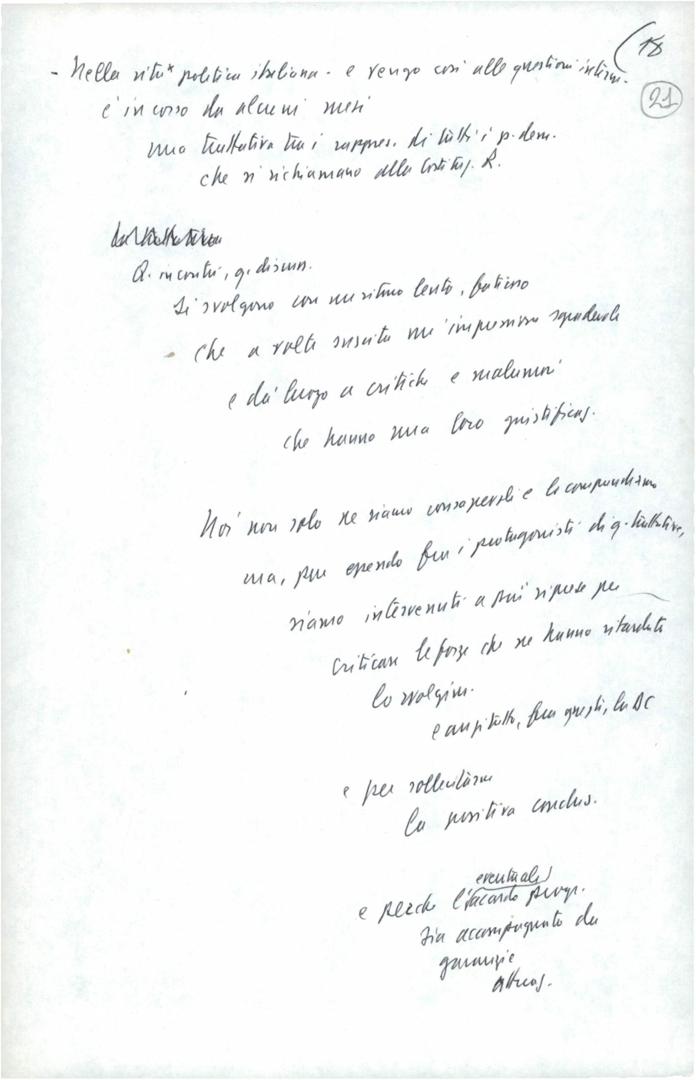 18
21
- Nella vita politica italiana - e vengo così alle questioni interne -
è in corso da alcuni mesi
una trattativa tra i rappres. di tutti i p. dem.
che si richiamano alla Costituz. R.
Q. incontri, q. discuss.
Si svolgono con un ritmo lento, faticoso
che a volte suscita un'impressione sgradevole
e dà luogo a critiche e malumori
che hanno una loro giustificaz.
Noi non solo ne siamo consapevoli e li comprendiamo
ma, pur essendo fra i protagonisti di q. trattative,
siamo intervenuti a più riprese per
criticare le forze che ne hanno ritardato
lo svolgim.
e anzitutto, fra queste, la DC
e per sollecitarne
la positiva conclus.
eventuale
e perché l'accordo progr.
sia accompagnato da
garanzie
attuaz.